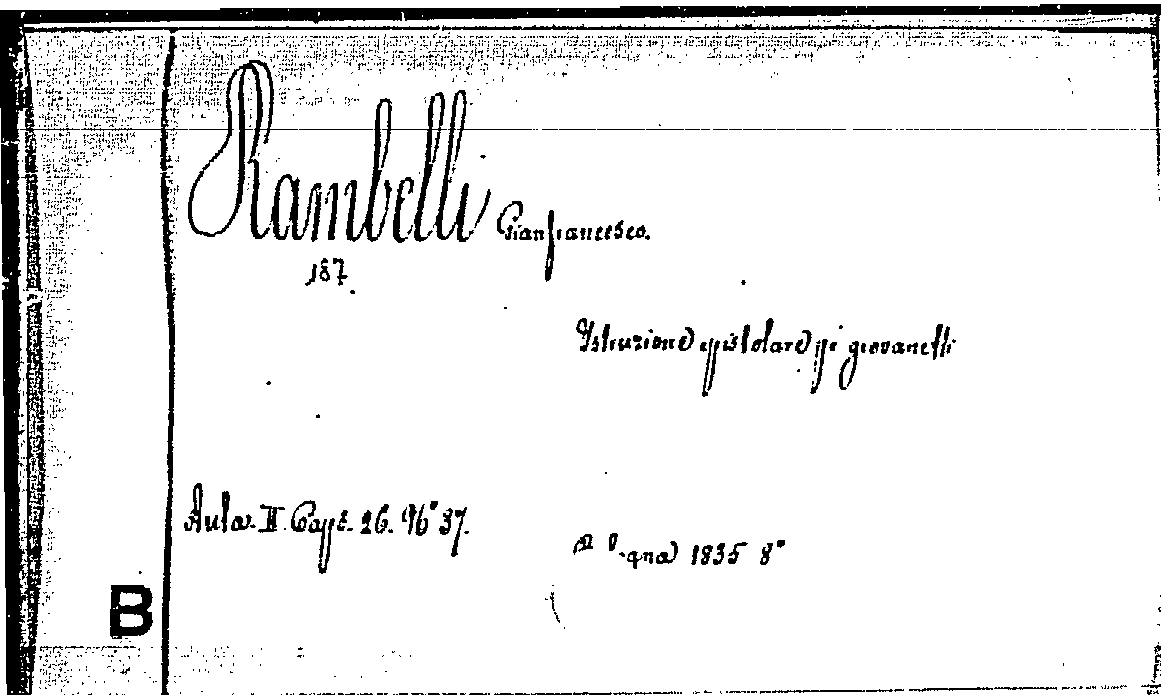 Rambelli Gianfrancesco.
187.
Istruzione epistolare pei giovanetti
Aula II. Capp. 26. N° 37.
1835 8°
B